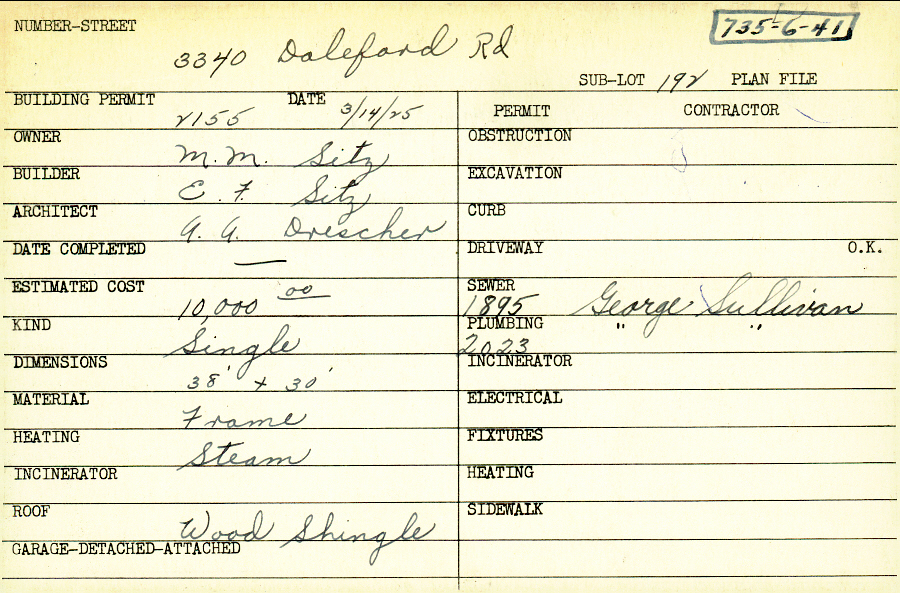 NUMBER-STREET
735-6-41
3340 Daleford Rd
SUB-LOT 192 PLAN FILE
BUILDING PERMIT DATE
2155 3/14/25
PERMIT CONTRACTOR
OWNER
M. M. Sitz
OBSTRUCTION
BUILDER
E. F. Sitz
EXCAVATION
ARCHITECT
A. A. Drescher
CURB
DATE COMPLETED
—
DRIVEWAY O.K.
ESTIMATED COST
10,000 00
SEWER
1895 George Sullivan
KIND
Single
PLUMBING " "
2023
DIMENSIONS
38' x 30'
INCINERATOR
MATERIAL
Frame
ELECTRICAL
HEATING
Steam
FIXTURES
INCINERATOR
HEATING
ROOF
Wood Shingle
SIDEWALK
GARAGE-DETACHED-ATTACHED